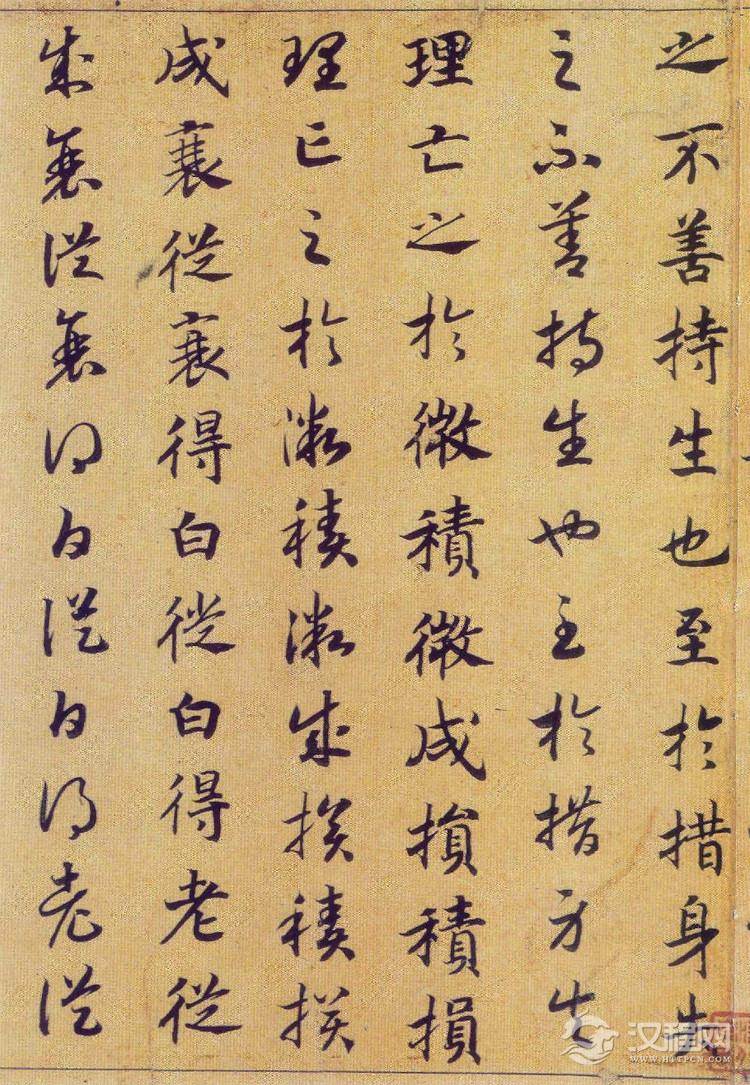 之不善持生也至於措身失
之不善持生也至於措身失
理亡之於微積微成損積損
理亡之於微積微成損積損
成衰從衰得白從白得老從
成衰從衰得白從白得老從
汉程网
WWW.HTTPCN.COM